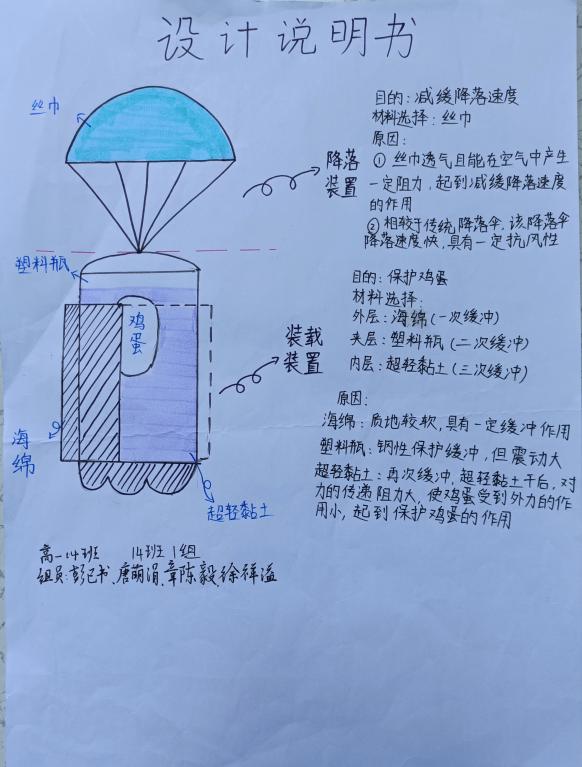 设计说明书
丝巾
降落
装置
目的：减缓降落速度
材料选择：丝巾
原因：
① 丝巾透气且能在空气中产生
一定阻力，起到减缓降落速度
的作用
② 相较于传统降落伞，该降落伞
降落速度快，具有一定抗风性
塑料瓶
鸡
蛋
海
绵
超轻黏土
装载
装置
目的：保护鸡蛋
材料选择：
外层：海绵（一次缓冲）
夹层：塑料瓶（二次缓冲）
内层：超轻黏土（三次缓冲）
原因：
海绵：质地较软，具有一定缓冲作用
塑料瓶：钢性保护缓冲，但震动大
超轻黏土：再次缓冲，超轻黏土干后，对
力的传递阻力大，使鸡蛋受到外力的作
用小，起到保护鸡蛋的作用
高一14班 14班1组
组员：彭已书、唐萌涓、章陈毅、徐祥溢